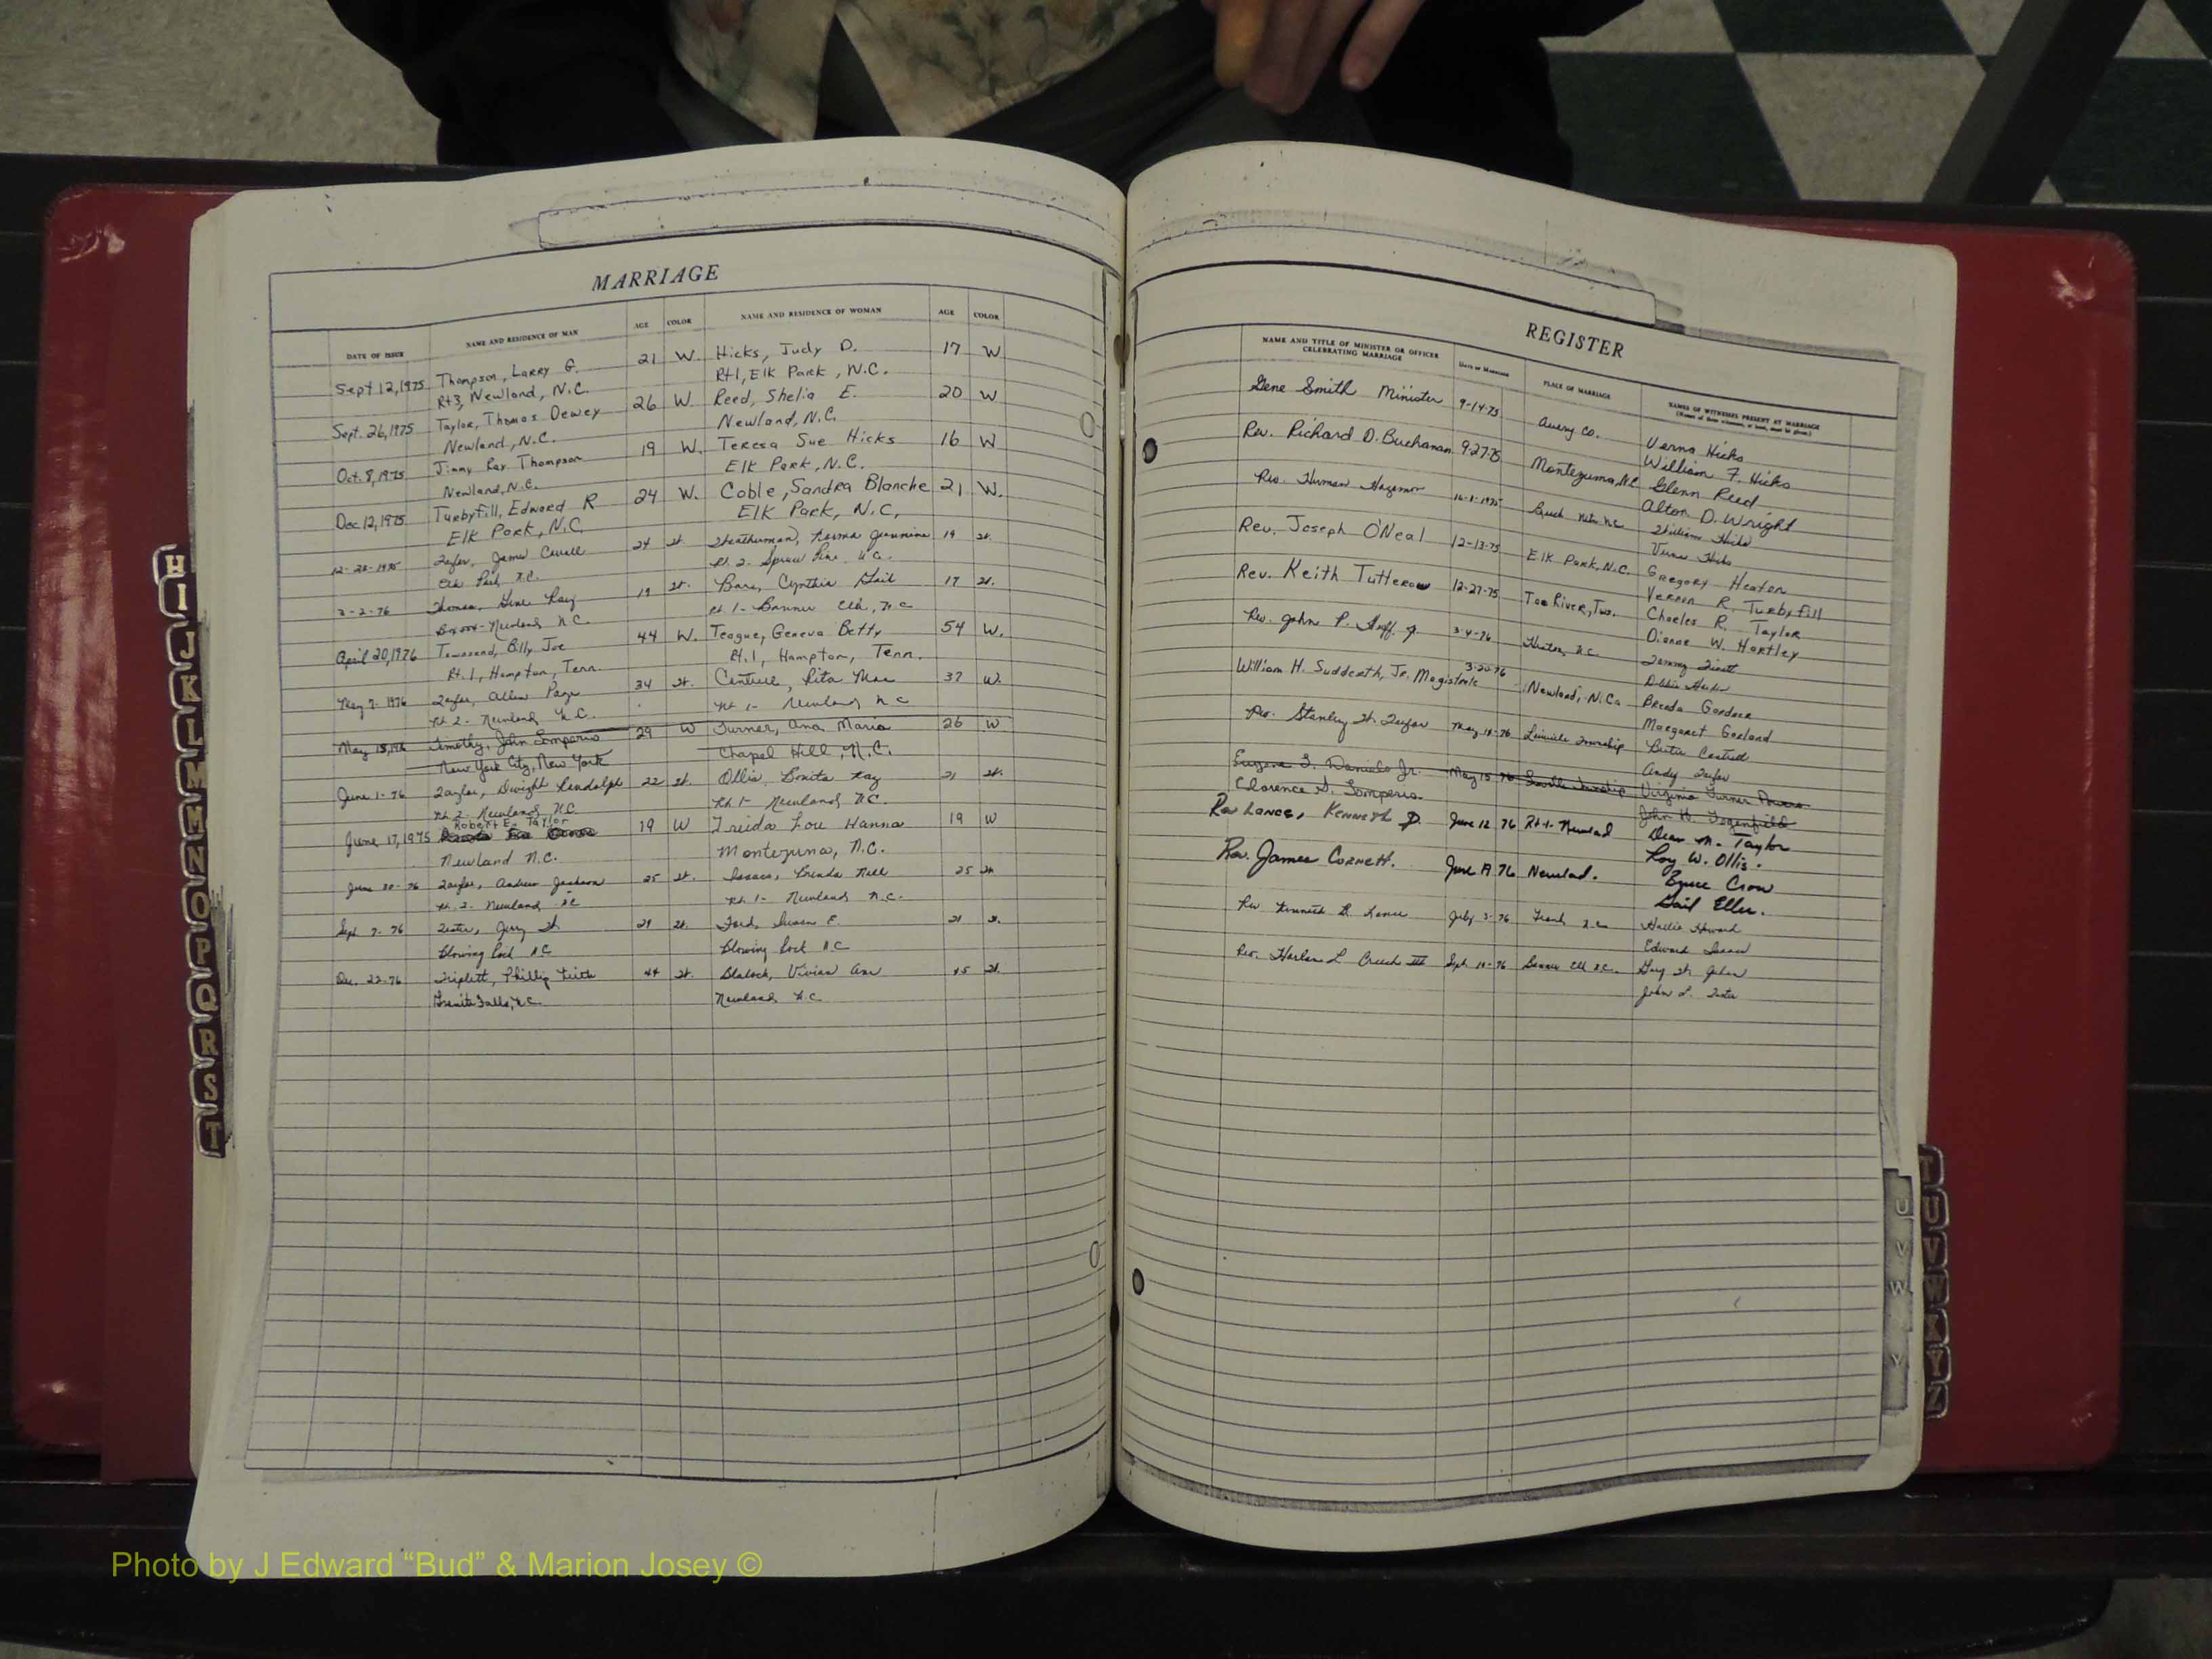 MARRIAGE
DATE OF ISSUE NAME AND RESIDENCE OF MAN AGE COLOR NAME AND RESIDENCE OF WOMAN AGE COLOR
Sept 12, 1975 Thompson, Larry G. 21 W. Hicks, Judy D. 17 W
Rt3, Newland, N.C. Rt1, Elk Park, N.C.
Sept. 26, 1975 Taylor, Thomas Dewey 26 W Reed, Shelia E. 20 W
Newland, N.C. Newland, N.C.
Oct. 8, 1975 Jimmy Ray Thompson 19 W. Teresa Sue Hicks 16 W
Newland, N.C. Elk Park, N.C.
Dec 12, 1975 Turbyfill, Edward R 24 W. Coble, Sandra Blanche 21 W.
Elk Park, N.C. Elk Park, N.C.
James 24 19
Elk Park, N.C. Rt. 2- Spruce Pine N.C.
3-2-76 Thomas, Gene Ray 19 Cynthia Gail 17
Newland N.C. Rt 1- Banner Elk, N.C
April 20, 1976 Townsend, Billy Joe 44 W. Teague, Geneva Betty 54 W.
Rt. 1, Hampton, Tenn. Rt. 1, Hampton, Tenn.
May 7- 1976 34 Rita Mae 37 W.
Rt 2- Newland N.C. Rt 1- Newland N C
May 15, 1976 Timothy, John Somperio 29 W Turner, Ana Maria 26 W
New York City, New York Chapel Hill, N.C.
June 1-76 Taylor, Dwight Randolph 22 Ollis Bonita Kay 21
Rt 2- Newland N.C. Rt 1- Newland N.C.
Robert E. Taylor
June 17, 1975 19 W Frieda Lou Hanna 19 W
Newland N.C. Montezuma, N.C.
June 30-76 Taylor, Andrew Jackson 25 Isaacs, Brenda Nell 25
Rt. 2- Newland N.C. Rt 1- Newland N.C.
Sept 7-76 Jerry 21 Ford, Susan E. 21
Blowing Rock N.C Blowing Rock N.C
Dec. 22-76 Triplett, Phillip Keith 44 Blalock, Vivian Ann 45
Granite Falls, N.C. Newland N.C
REGISTER
NAME AND TITLE OF MINISTER OR OFFICER CELEBRATING MARRIAGE DATE OF MARRIAGE PLACE OF MARRIAGE NAMES OF WITNESSES PRESENT AT MARRIAGE
Gene Smith Minister 9-14-75 Avery Co. Verna Hicks
William F. Hicks
Rev. Richard D. Buchanan 9-27-75 Montezuma, N.C Glenn Reed
Alton D. Wright
Rev. William Hicks
Verna Hicks
Rev. Joseph O'Neal 12-13-75 Elk Park, N.C. Gregory Heaton
Vernon R. Turbyfill
Rev. Keith Tutterow 12-27-75 Toe River, Twp. Charles R. Taylor
Dianne W. Hartley
Rev. John P. 3-4-76
William H. Suddreth, Jr. Magistrate 3-20-76 Newland, N.C. Brenda Gardner
Margaret Garland
Rev. Stanley May 76 Linville Township
Andy
Eugene Daniels Jr. May 15 76 Linville Township Virginia Turner
Clarence S. Somperio. John H.
Rev Lance, Kenneth D. June 12 76 Rt-1- Newland Dean M. Taylor
Roy W. Ollis.
Rev. James Cornett. June 19 76 Newland. Bruce Crow
Gail Eller.
Rev Kenneth D Lance July 3-76 Frank N.C Howard
Edward Isaacs
Rev. Harlan L Creech III Sept 76 Banner Elk N.C.
John L.
H I J K L M M N O P Q R S T
T U V W X Y Z
U V W Y
Photo by J Edward “Bud” & Marion Josey ©